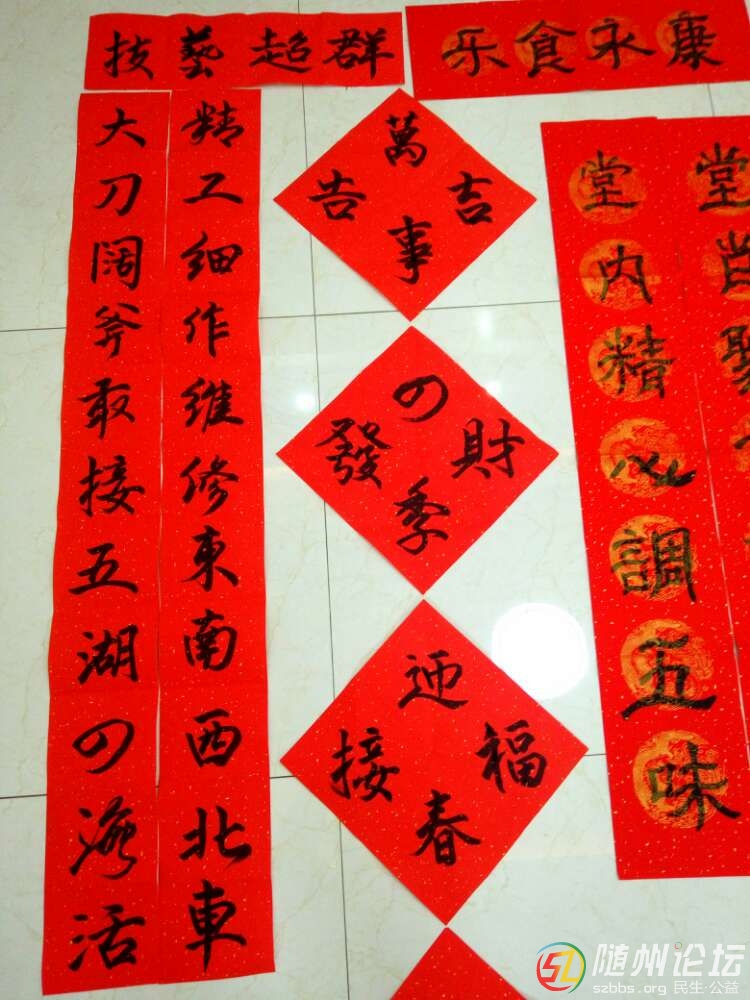 技藝超群
乐食永康
大刀阔斧敢接五湖四海活
精工细作維修東南西北車
萬事吉告
四季財發
迎春接福
堂内精心調五味
堂
随州论坛
szbbs.org 民生·公益